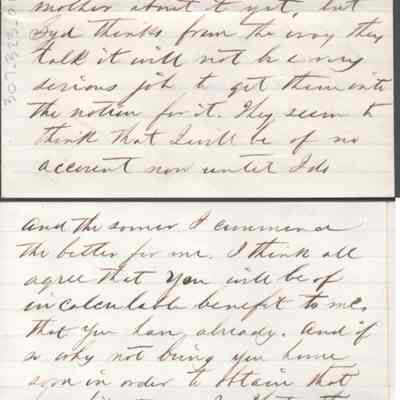 mother about it yet, but
Syd thinks from the way they
talk it will not be a very
serious job to get them into
the notion for it. They seem to
think that I will be of no
account now until I do
and the sooner I commence
the better for me. I think all
agree that you will be of
incalculable benefit to me,
that you have already. And if
so why not bring you home
soon in order to obtain that